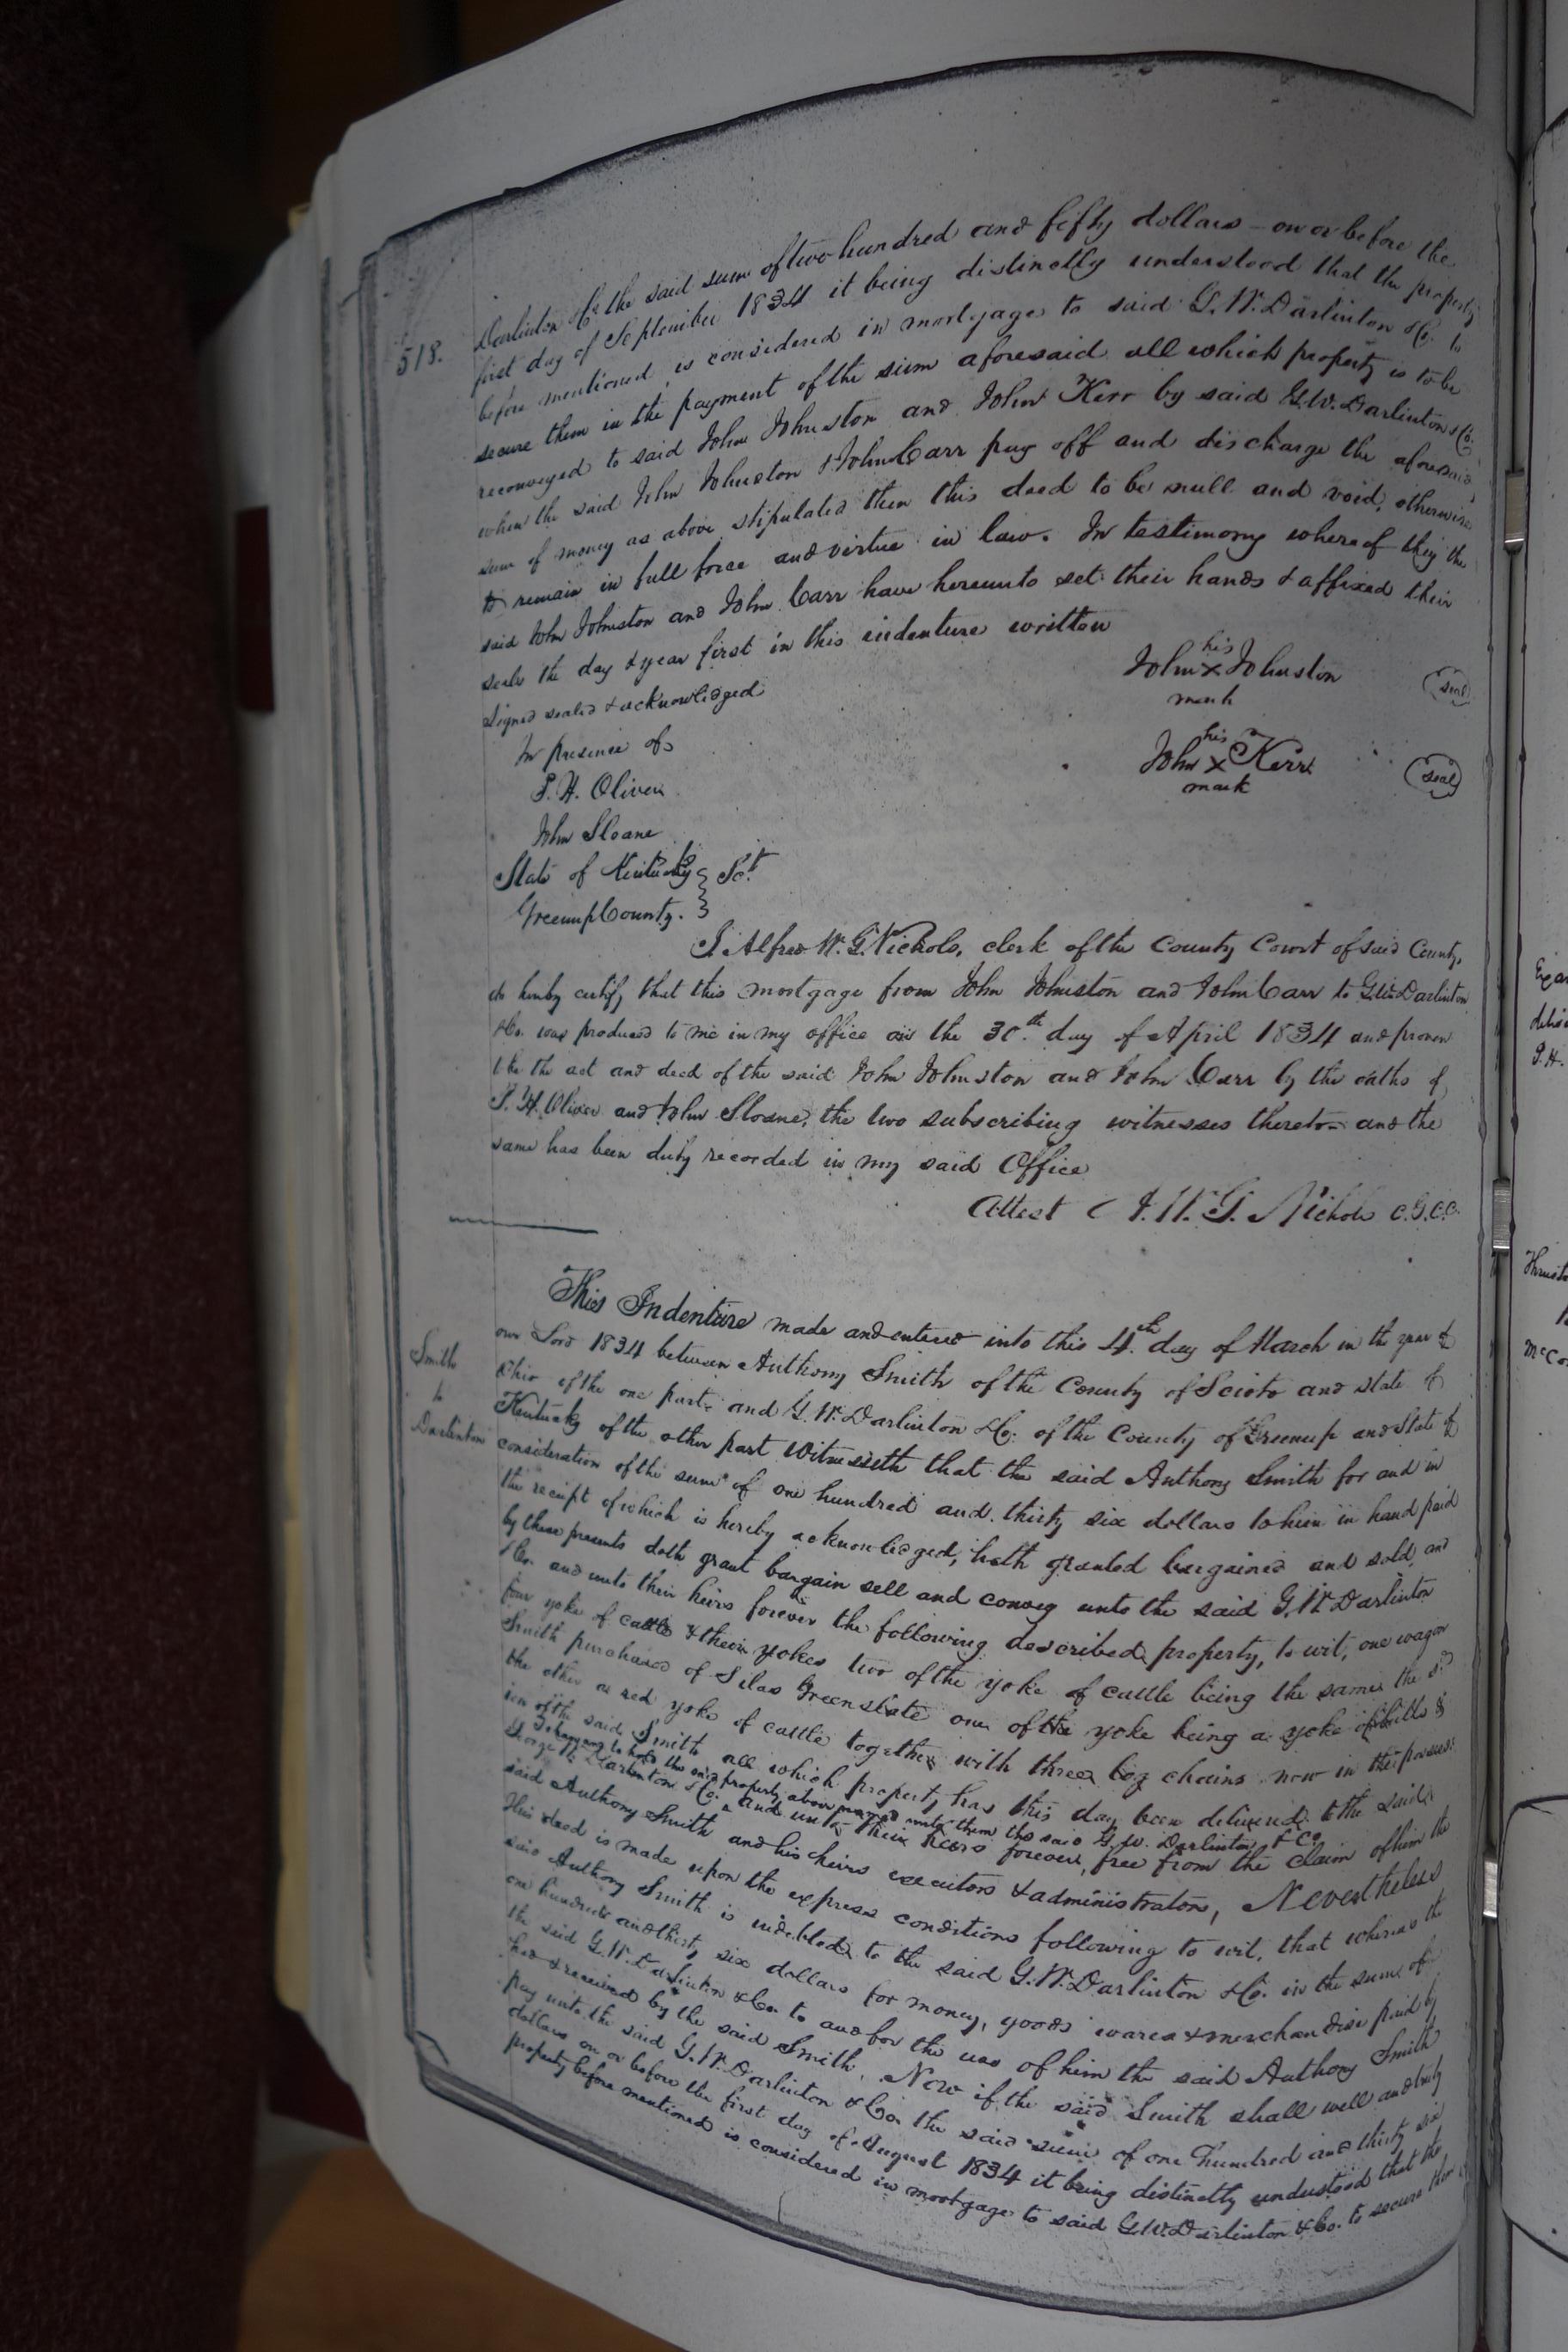 518.
Darlinton & Co. the said sum of two hundred and fifty dollars - on or before the
first day of September 1834 it being distinctly understood that the property
before mentioned is considered in mortgage to said G. W. Darlinton & Co. to
secure them in the payment of the sum aforesaid all which property is to be
reconveyed to said John Johnston and John Kerr by said G. W. Darlinton & Co.
when the said John Johnston & John Carr pay off and discharge the aforesaid
sum of money as above stipulated then this deed to be null and void, otherwise
to remain in full force and virtue in law. In testimony whereof they the
said John Johnston and John Carr have hereunto set their hands & affixed their
seals the day & year first in this indenture written
Signed sealed & acknowledged
In presence of
P. H. Oliver
John Sloane
his
John X Johnston (seal)
mark
his
John X Kerr (seal)
mark
State of Kentucky } Sct.
Greenup County. }
I Alfred W. G. Nichols, clerk of the County Court of said County,
do hereby certify that this mortgage from John Johnston and John Carr to G. W. Darlinton
& Co. was produced to me in my office on the 30th day of April 1834 and proven
to be the act and deed of the said John Johnston and John Carr by the oaths of
P. H. Oliver and John Sloane, the two subscribing witnesses thereto - and the
same has been duly recorded in my said Office
Attest A. W. G. Nichols C.G.C.C.
Smith
to
Darlinton
This Indenture made and entered into this 4th day of March in the year of
our Lord 1834 between Anthony Smith of the County of Scioto and state of
Ohio of the one part and G. W. Darlinton & Co. of the County of Greenup and State of
Kentucky of the other part Witnesseth that the said Anthony Smith for and in
consideration of the sum of one hundred and thirty six dollars to him in hand paid
the receipt of which is hereby acknowledged, hath granted bargained and sold, and
by these presents doth grant bargain sell and convey unto the said G. W. Darlinton
& Co. and unto their heirs forever the following described property, to wit, one wagon
four yoke of cattle & their yokes two of the yoke of cattle being the same the sd.
Smith purchased of Silas Greenslate one of the yoke being a yoke of bulls &
the other a red yoke of cattle together with three log chains now in the possess-
ion of the said Smith all which property has this day been delivered to the said
To have and to hold the said property above named unto them the said G. W. Darlinton & Co.
George W. Darlinton & Co. ^ and unto their heirs forever, free from the claim of him the
said Anthony Smith and his heirs executors & administrators, Nevertheless
this deed is made upon the express conditions following to wit, that whereas the
said Anthony Smith is indebted to the said G. W. Darlinton & Co. in the sum of
one hundred and thirty six dollars for money, goods wares & merchandise paid by
the said G. W. Darlinton & Co. to and for the use of him the said Anthony Smith
had & received by the said Smith. Now if the said Smith shall well and truly
pay unto the said G. W. Darlinton & Co. the said sum of one hundred and thirty six
dollars on or before the first day of August 1834 it being distinctly understood that the
property before mentioned is considered in mortgage to said G. W. Darlinton & Co. to secure them
P. H.